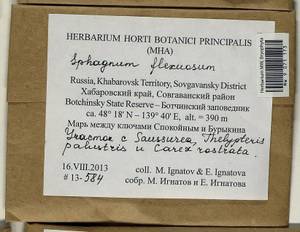 HERBARIUM HORTI BOTANICI PRINCIPALIS
(MHA)
Sphagnum flexuosum
Russia, Khabarovsk Territory, Sovgavansky District
Хабаровский край, Совгаванский район
Botchinsky State Reserve – Ботчинский заповедник
ca. 48° 18' N – 139° 40' E, alt. ≈ 390 m
Марь между ключами Спокойным и Бурыкина
Участок с Saussurea, Thelypteris
palustris и Carex rostrata.
16.VIII.2013
coll. M. Ignatov & E. Ignatova
# 13- 584
собр. М. Игнатов и Е. Игнатова